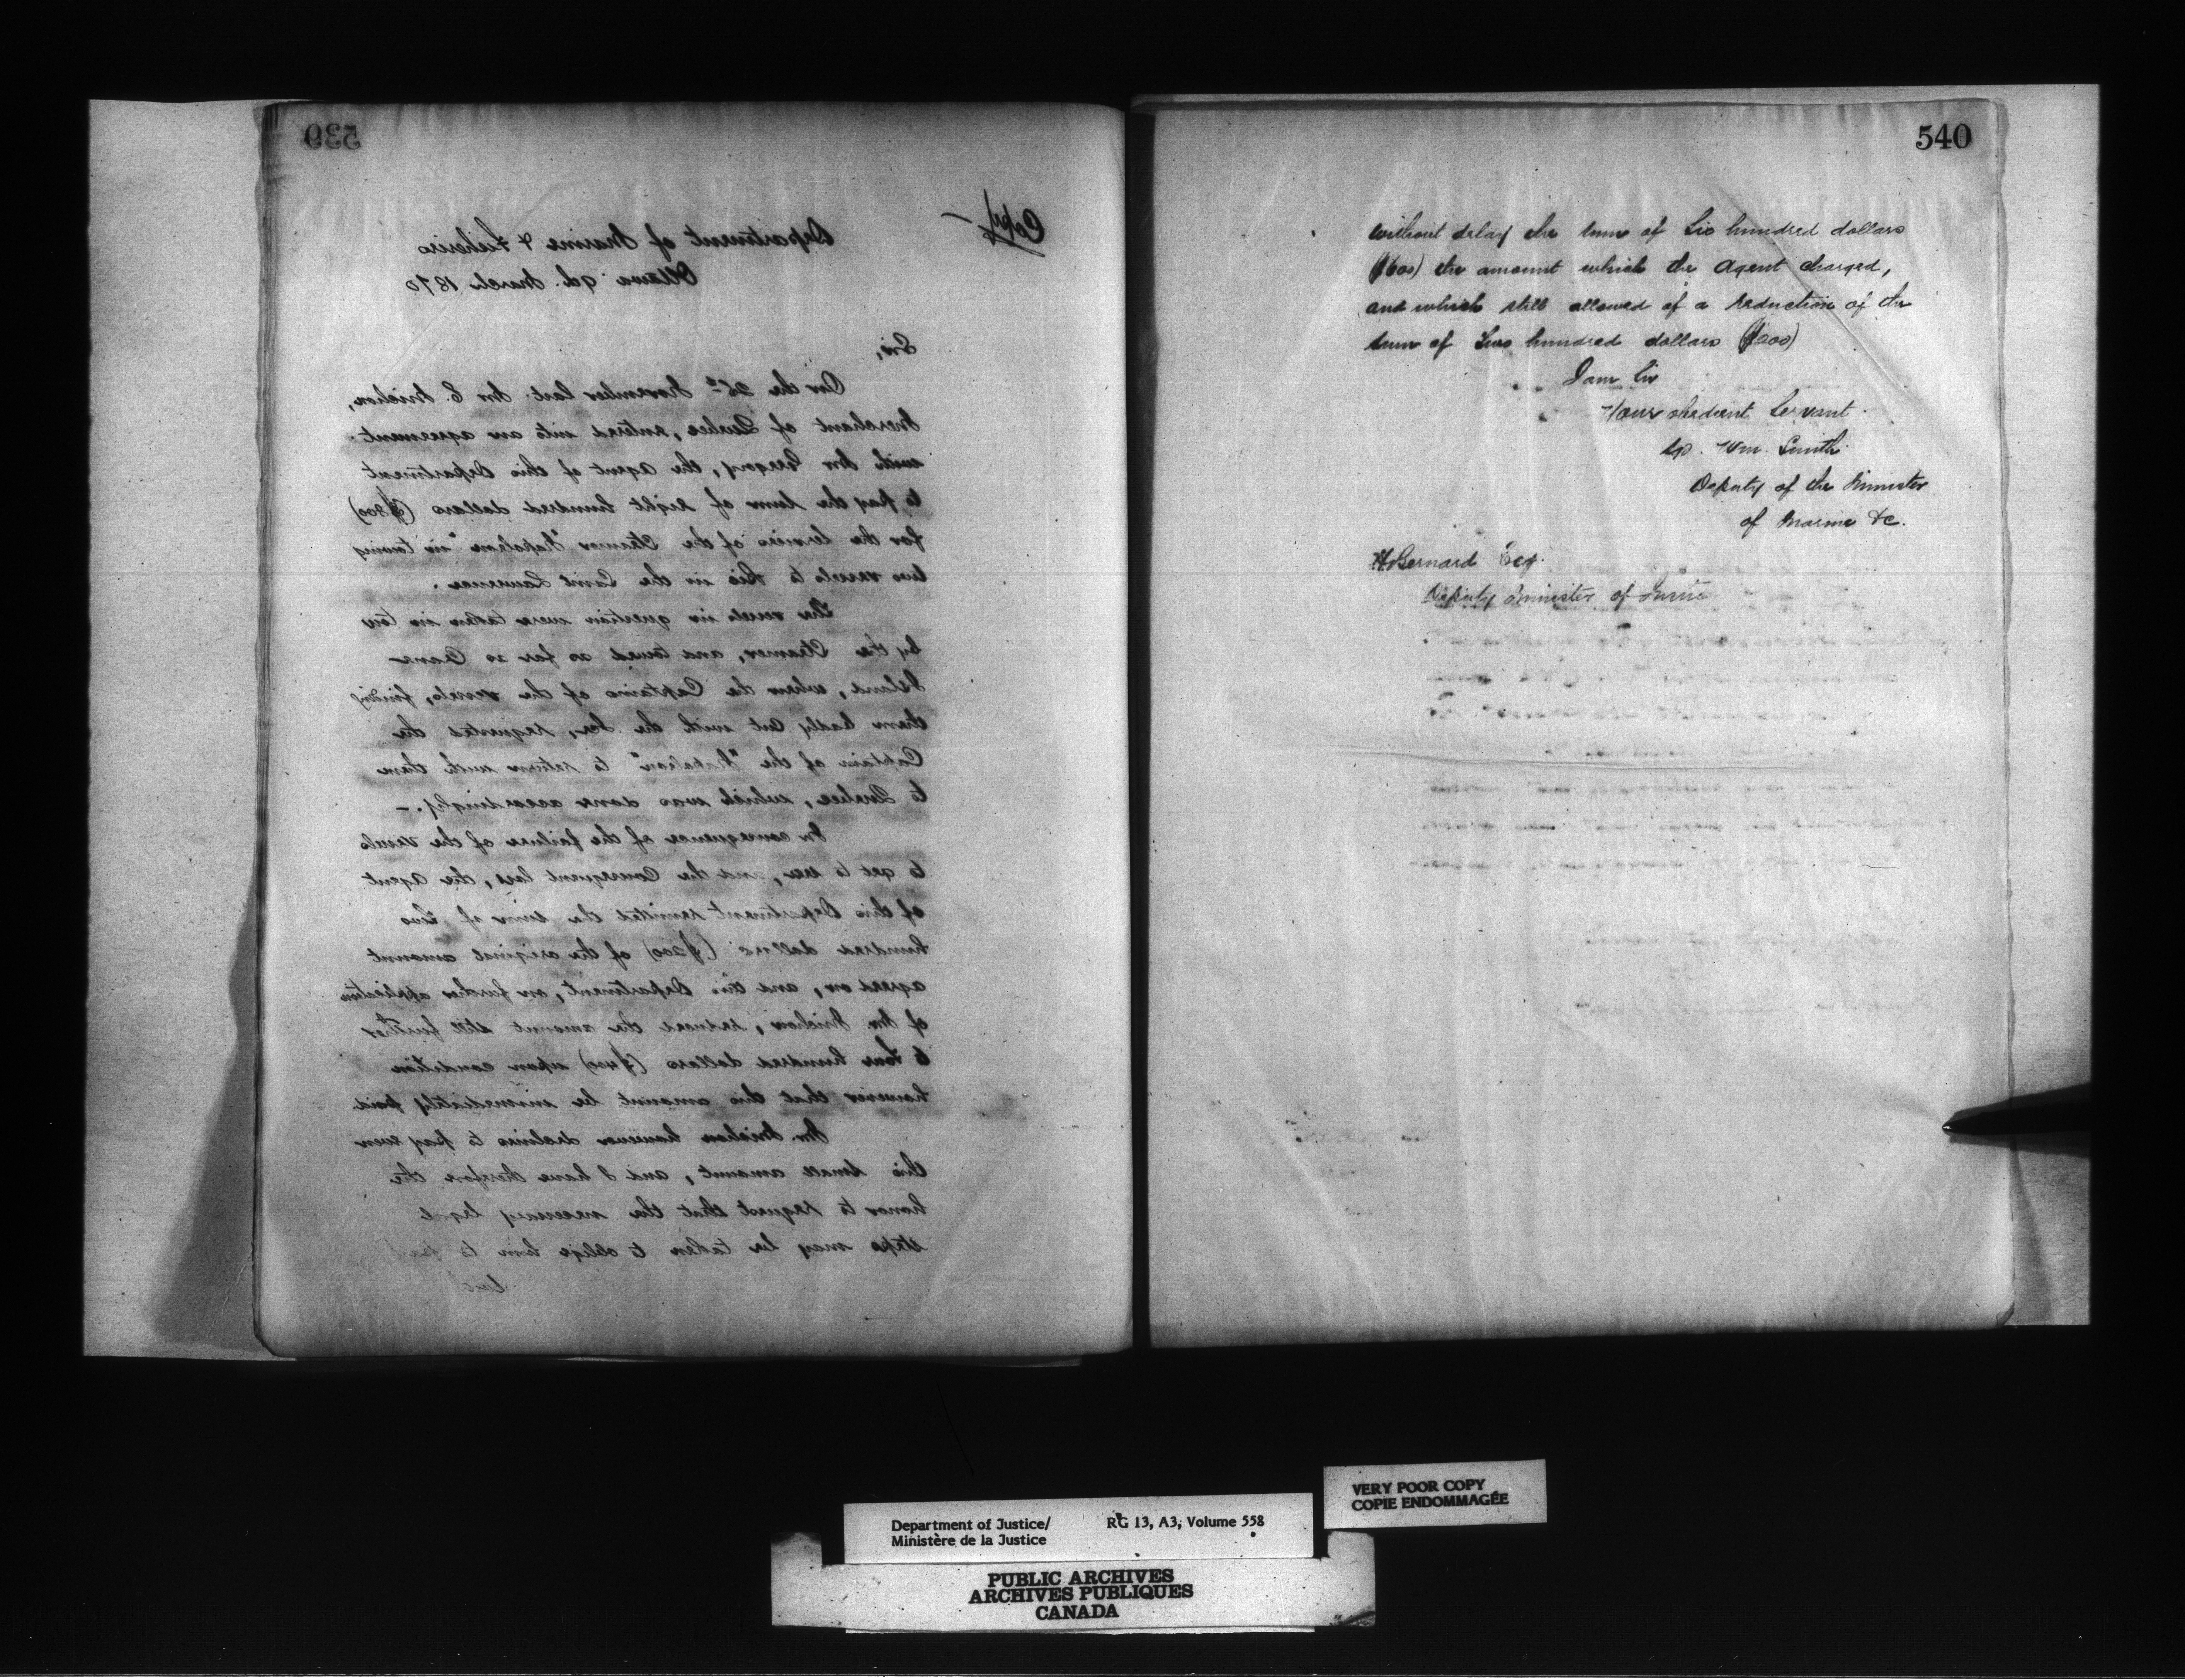 539
Copy
Department of Marine & Fisheries
Ottawa 9th. March 1870
Sir,
On the 26th November last Mr E. Michon,
Merchant of Quebec, entered into an agreement
with Mr Gregory, the Agent of this Department
to pay the sum of eight hundred dollars ($800)
for the services of the Steamer "Napoleon" in towing
two vessels to Bic in the Saint Lawrence.
The vessels in question were taken in tow
by the Steamer, and towed as far as Crane
Island, when the Captains of the vessels, finding
them badly cut with the Ice, requested the
Captain of the "Napoleon" to return with them
to Quebec, which was done accordingly. –
In consequence of the failure of the vessels
to get to sea, and the Consequent loss, the Agent
of this Department remitted the sum of two
hundred dollars ($200) of the original amount
agreed on, and this Department, on further application
of Mr Michon, reduced the amount still further
to four hundred dollars ($400) upon condition
however that this amount be immediately paid.
Mr. Michon however declines to pay even
this small amount, and I have therefore the
honor to request that the necessary legal
steps may be taken to oblige him to pay
540
without delay the sum of Six hundred dollars
($600) the amount which the Agent charged,
and which still allowed of a reduction of the
sum of Two hundred dollars ($200)
I am Sir
Your obedient Servant.
Sgd. Wm. Smith.
Deputy of the Minister
of Marine &c.
H Bernard Esq.
Deputy Minister of Justice
VERY POOR COPY
COPIE ENDOMMAGÉE
Department of Justice/ RG 13, A3, Volume 558
Ministère de la Justice
PUBLIC ARCHIVES
ARCHIVES PUBLIQUES
CANADA